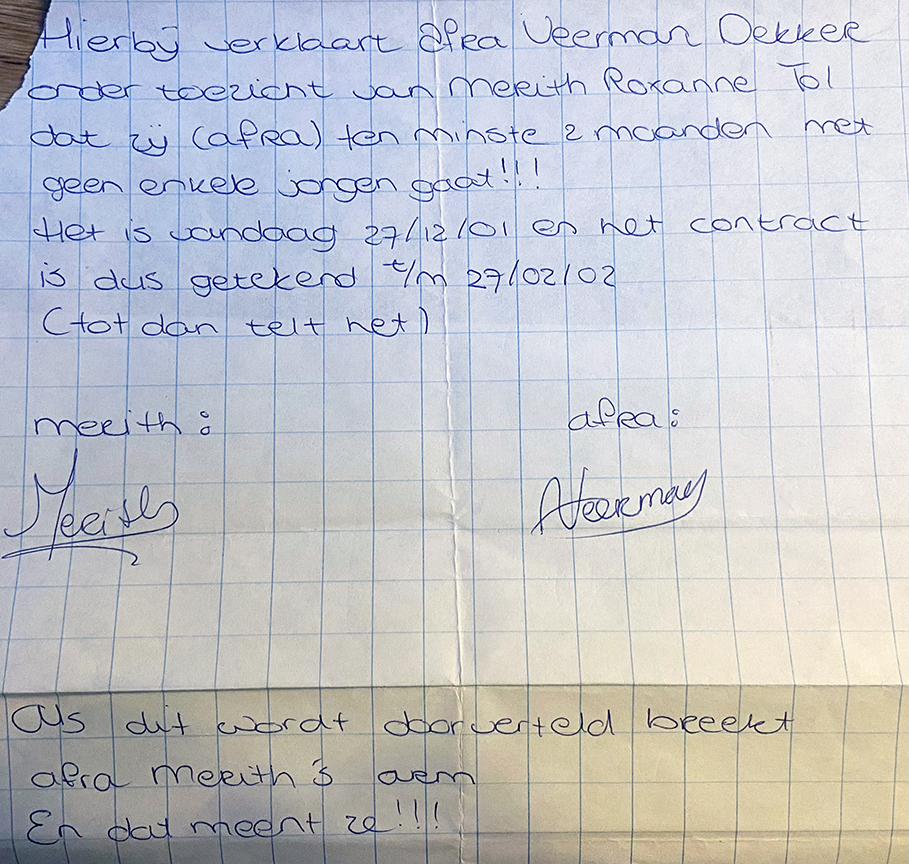 Hierbij verklaart Afra Veerman Dekker
onder toezicht van Merith Roxanne Tol
dat zij (afra) ten minste 2 maanden met
geen enkele jongen gaat!!!
Het is vandaag 27/12/01 en het contract
is dus getekend t/m 27/02/02
(tot dan telt het)
merith: afra:
Merith AVeerman
Als dit wordt doorverteld breekt
afra Merith's arm
En dat meent ze!!!